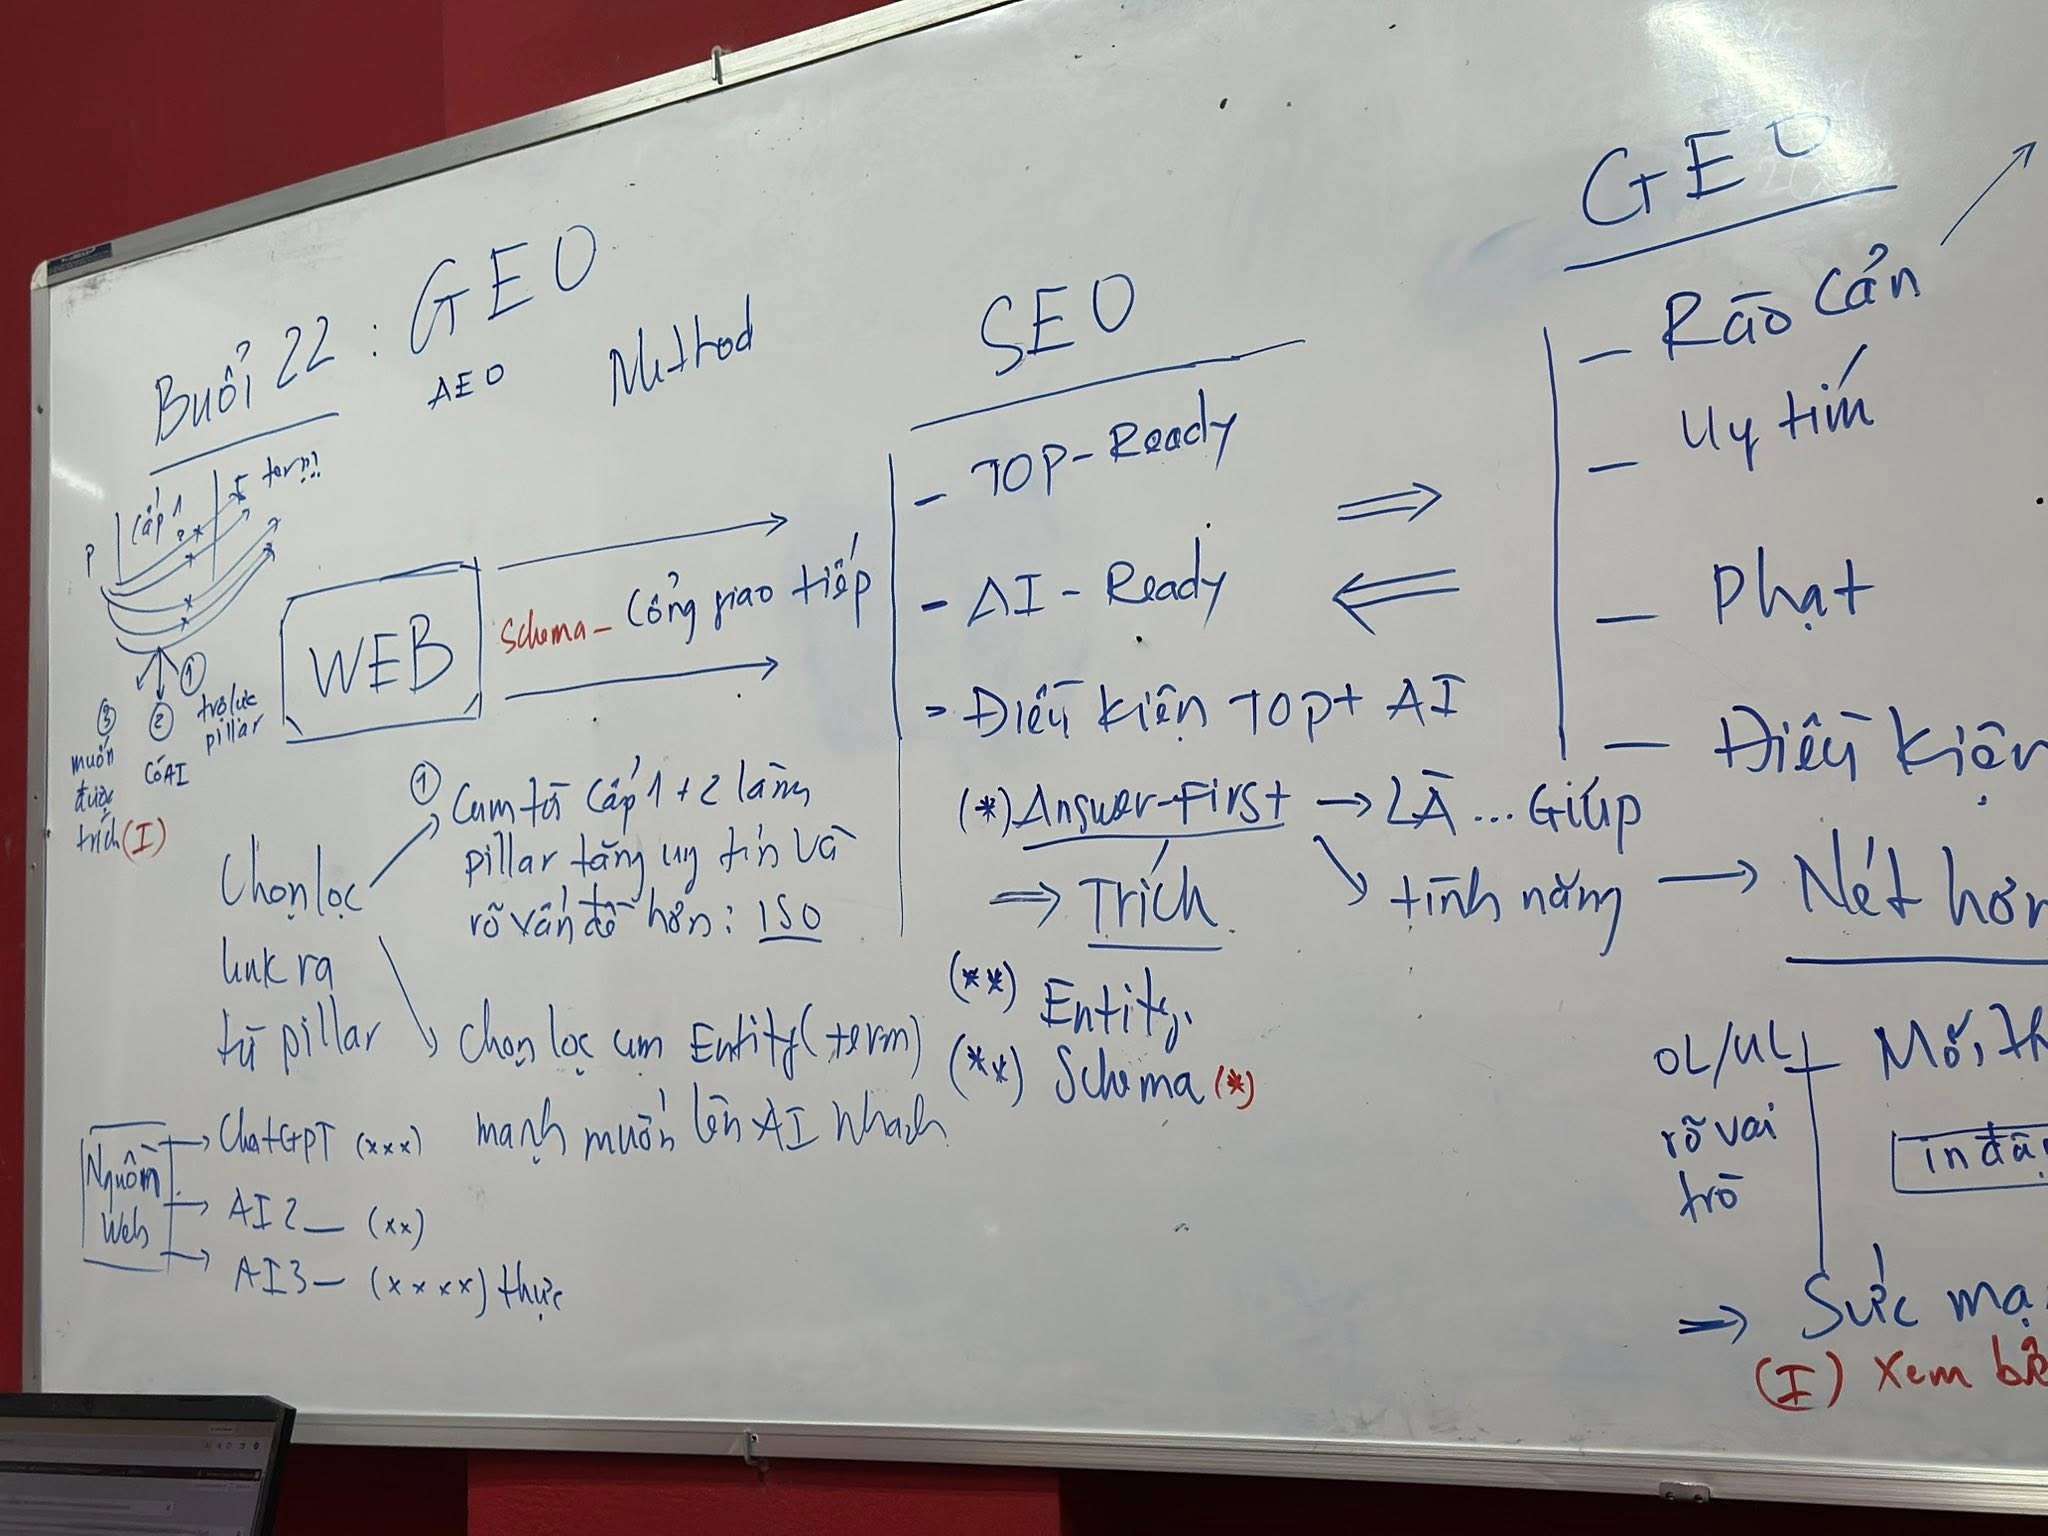 Buổi 22 : GEO
AEO Method
Cấp 1
P
①
trợ lực
pillar
②
Có AI
③
muốn
được
trích (I)
WEB
Schema - Cổng giao tiếp
Chọn lọc
link ra
từ pillar
① Cụm từ Cấp 1 + 2 làm
pillar tăng uy tín và
rõ vấn đề hơn : ISO
Chọn lọc cụm Entity (term)
mạnh muốn lên AI Nhanh
Nguồn
Web
ChatGPT (xxx)
AI2 - (xx)
AI3 - (xxxx) thực
SEO
- TOP - Ready
- AI - Ready
- Điều kiện TOP + AI
(*) Answer-First → LÀ ... Giúp
⇒ Trích
tính năng → Nét hơn
(**) Entity
(**) Schema (*)
GEO
- Rào cản
- Uy tín
- Phạt
- Điều kiện
OL/UL
rõ vai
trò
⇒ Sức
(I) Xem